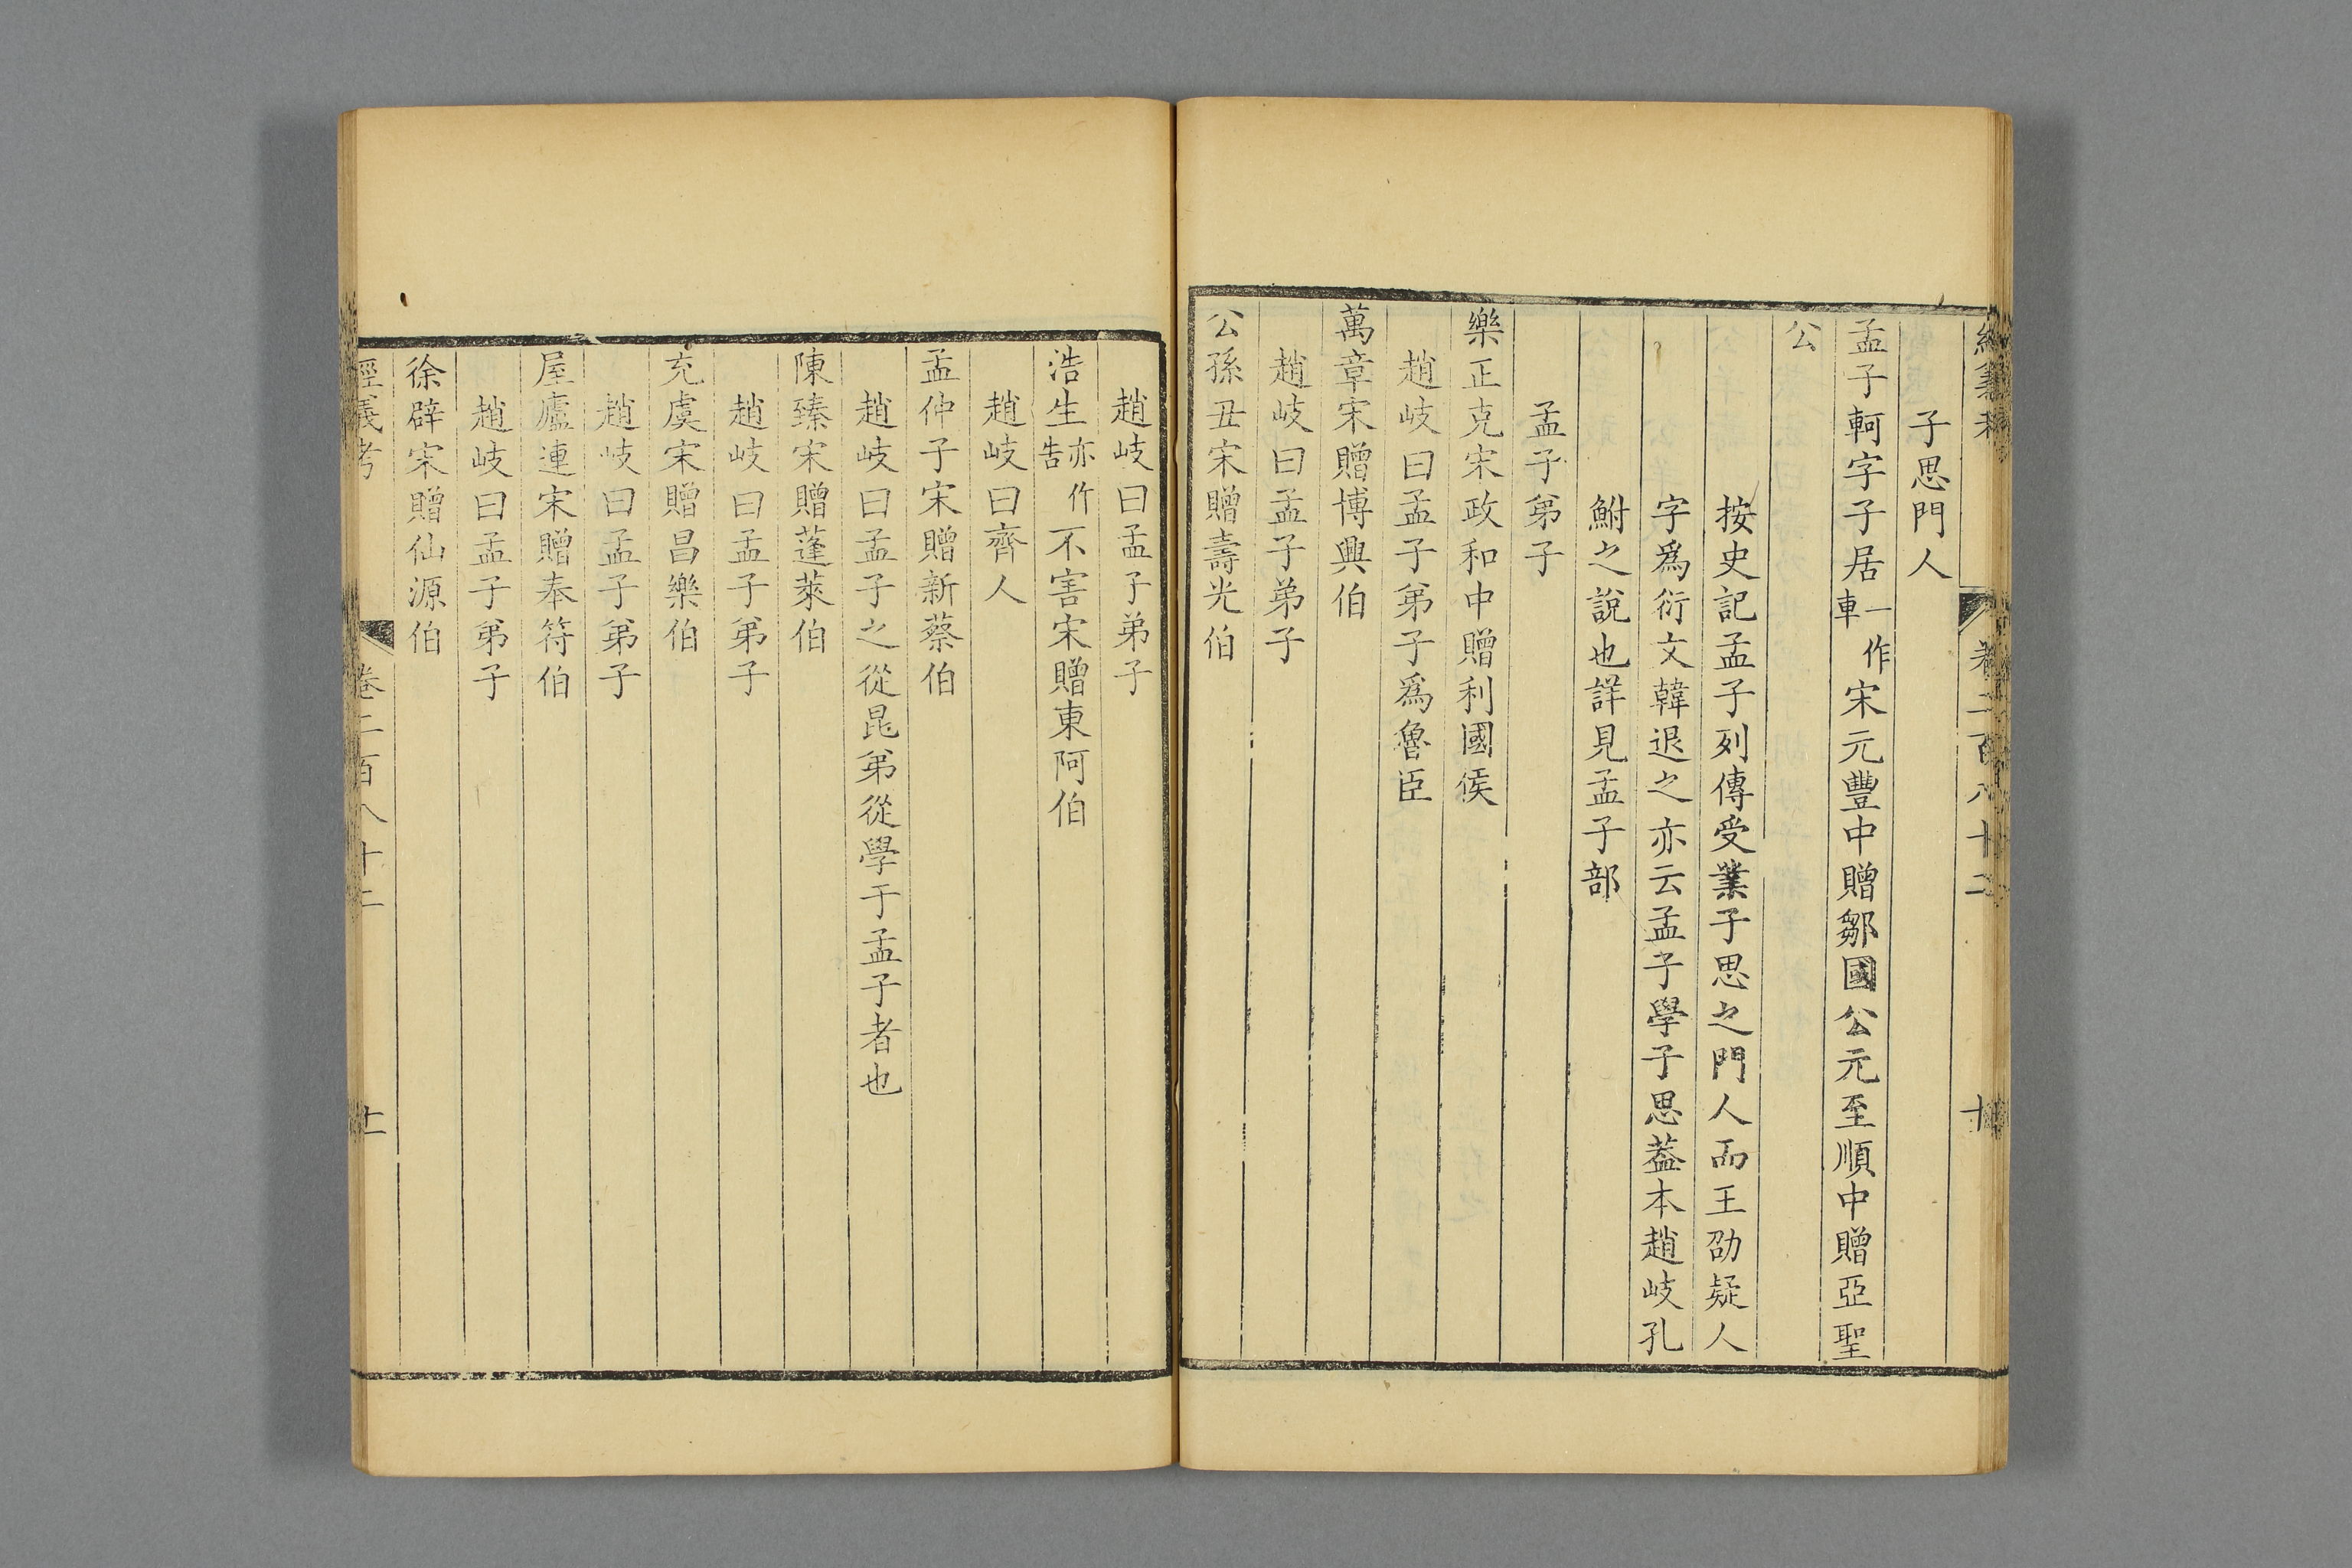 子思門人
孟子軻字子居一作車宋元豐中贈鄒國公元至順中贈亞聖
公
按史記孟子列傳受業子思之門人而王劭疑人
字爲衍文韓退之亦云孟子學子思葢本趙岐孔
鮒之說也詳見孟子部
孟子弟子
樂正克宋政和中贈利國侯
趙岐曰孟子弟子爲魯臣
萬章宋贈博興伯
趙岐曰孟子弟子
公孫丑宋贈壽光伯
趙岐曰孟子弟子
浩生亦作告不害宋贈東阿伯
趙岐曰齊人
孟仲子宋贈新蔡伯
趙岐曰孟子之從昆弟從學于孟子者也
陳臻宋贈蓬萊伯
趙岐曰孟子弟子
充虞宋贈昌樂伯
趙岐曰孟子弟子
屋廬連宋贈奉符伯
趙岐曰孟子弟子
徐辟宋贈仙源伯
經義考 卷二百八十二 十一